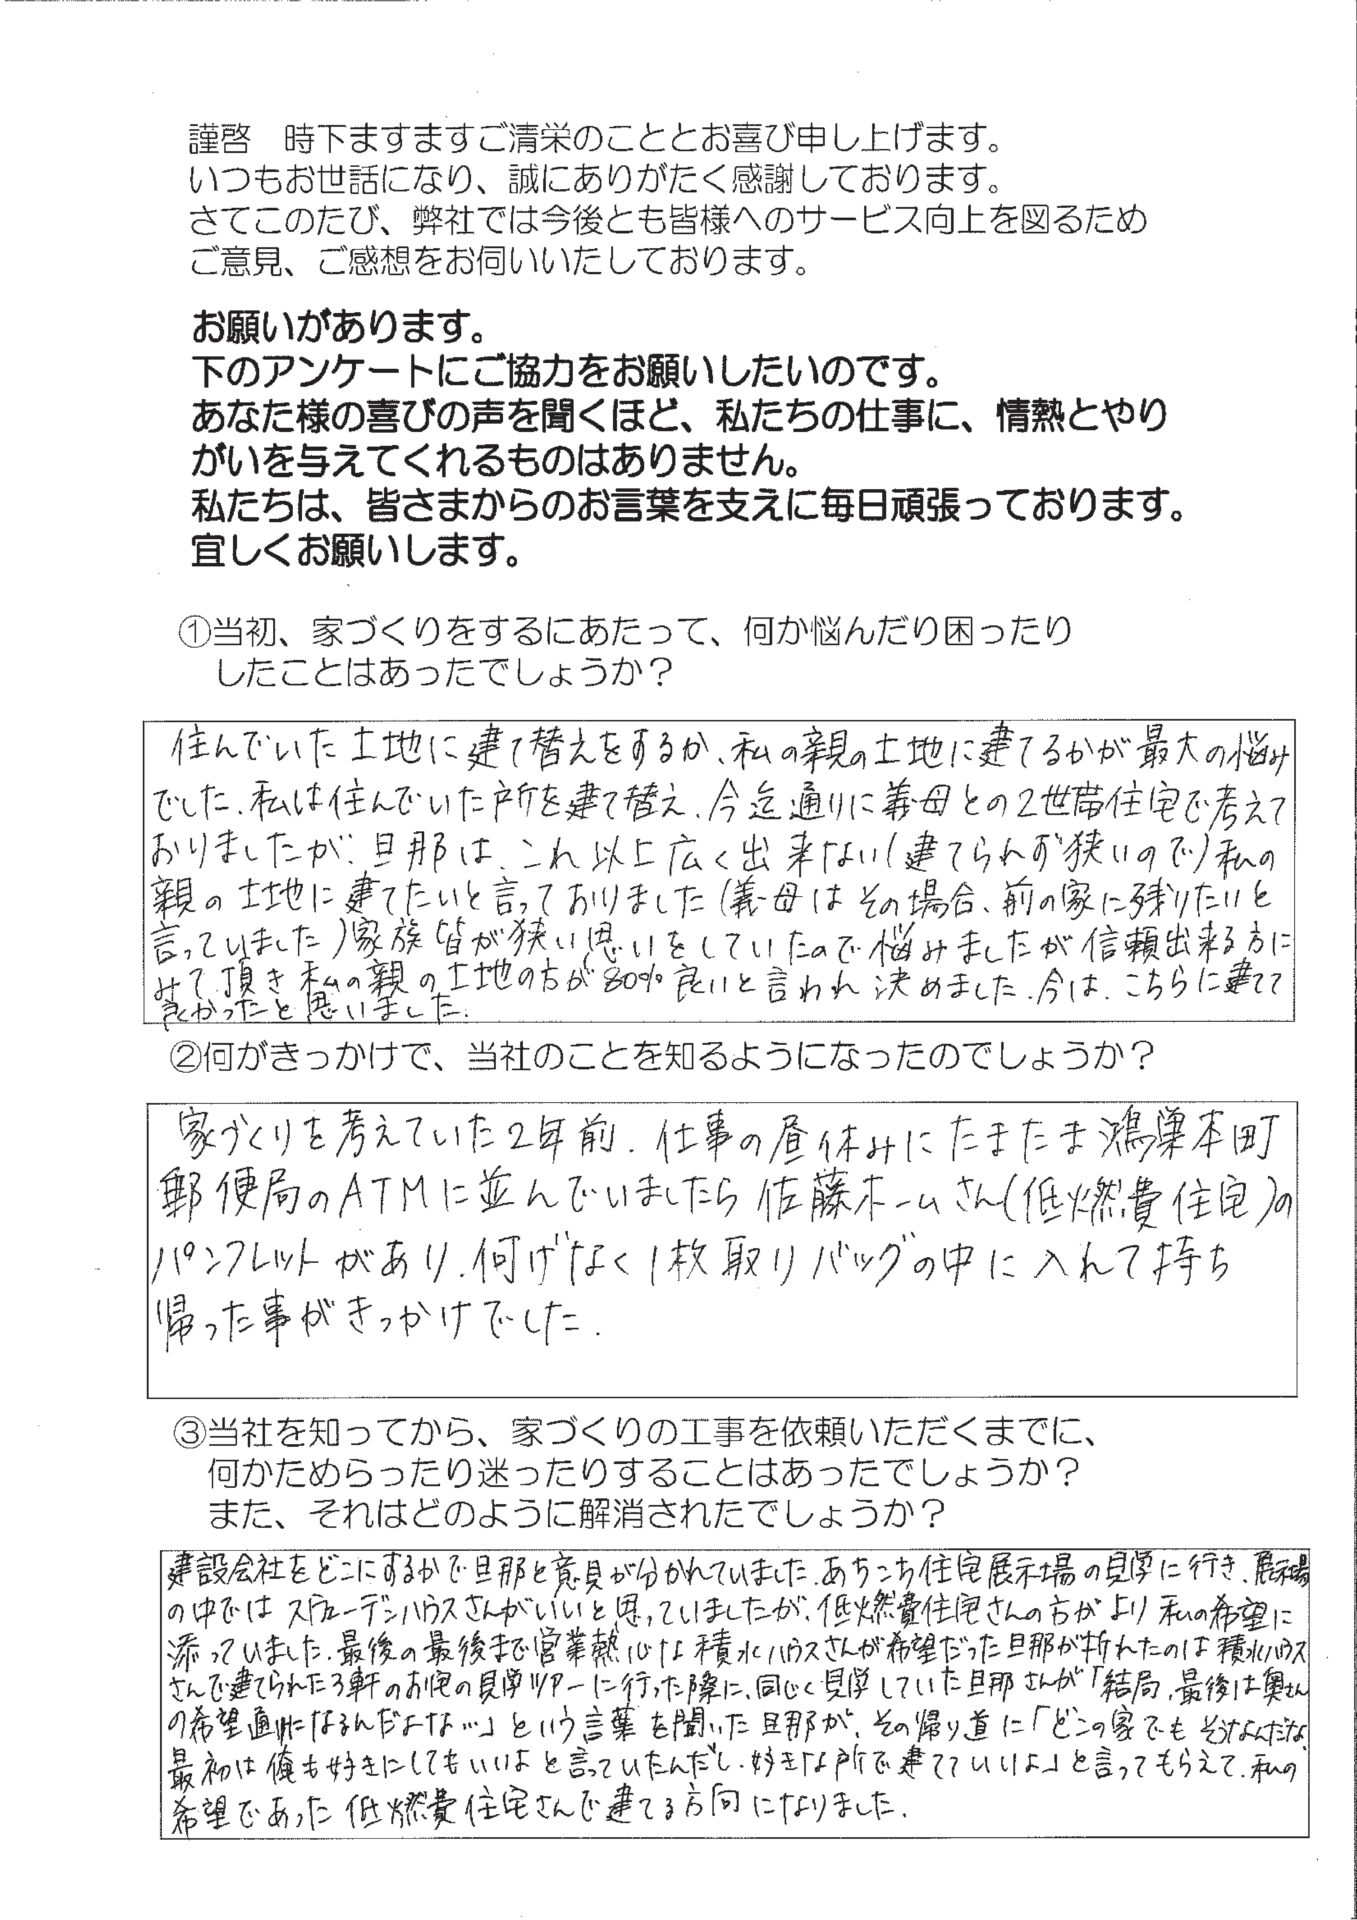 謹啓　時下ますますご清栄のこととお喜び申し上げます。
いつもお世話になり、誠にありがたく感謝しております。
さてこのたび、弊社では今後とも皆様へのサービス向上を図るため
ご意見、ご感想をお伺いいたしております。
お願いがあります。
下のアンケートにご協力をお願いしたいのです。
あなた様の喜びの声を聞くほど、私たちの仕事に、情熱とやり
がいを与えてくれるものはありません。
私たちは、皆さまからのお言葉を支えに毎日頑張っております。
宜しくお願いします。
①当初、家づくりをするにあたって、何か悩んだり困ったり
したことはあったでしょうか？
住んでいた土地に建て替えをするか、私の親の土地に建てるかが最大の悩み
でした。私は住んでいた所を建て替え、今迄通りに義母との2世帯住宅で考えて
おりましたが、旦那は、これ以上広く出来ない(建てられず狭いので)私の
親の土地に建てたいと言っておりました(義母はその場合、前の家に残りたいと
言っていました)家族皆が狭い思いをしていたので悩みましたが信頼出来る方に
みて頂き私の親の土地の方が80%良いと言われ決めました。今は、こちらに建てて
良かったと思いました。
②何がきっかけで、当社のことを知るようになったのでしょうか？
家づくりを考えていた2年前、仕事の昼休みにたまたま鴻巣本町
郵便局のATMに並んでいましたら佐藤ホームさん(低燃費住宅)の
パンフレットがあり、何げなく1枚取りバッグの中に入れて持ち
帰った事がきっかけでした。
③当社を知ってから、家づくりの工事を依頼いただくまでに、
何かためらったり迷ったりすることはあったでしょうか？
また、それはどのように解消されたでしょうか？
建設会社をどこにするかで旦那と意見が分かれていました。あちこち住宅展示場の見学に行き、展示場
の中ではスウェーデンハウスさんがいいと思っていましたが、低燃費住宅さんの方がより私の希望に
添っていました。最後の最後まで営業熱心な積水ハウスさんが希望だった旦那が折れたのは積水ハウス
さんで建てられた3軒のお宅の見学ツアーに行った際に、同じく見学していた旦那さんが「結局、最後は奥さん
の希望通りになるんだよな…」という言葉を聞いた旦那が、その帰り道に「どこの家でもそうなんだな、
最初は俺も好きにしてもいいよと言っていたんだし、好きな所で建てていいよ」と言ってもらえて、私の
希望であった低燃費住宅さんで建てる方向になりました。